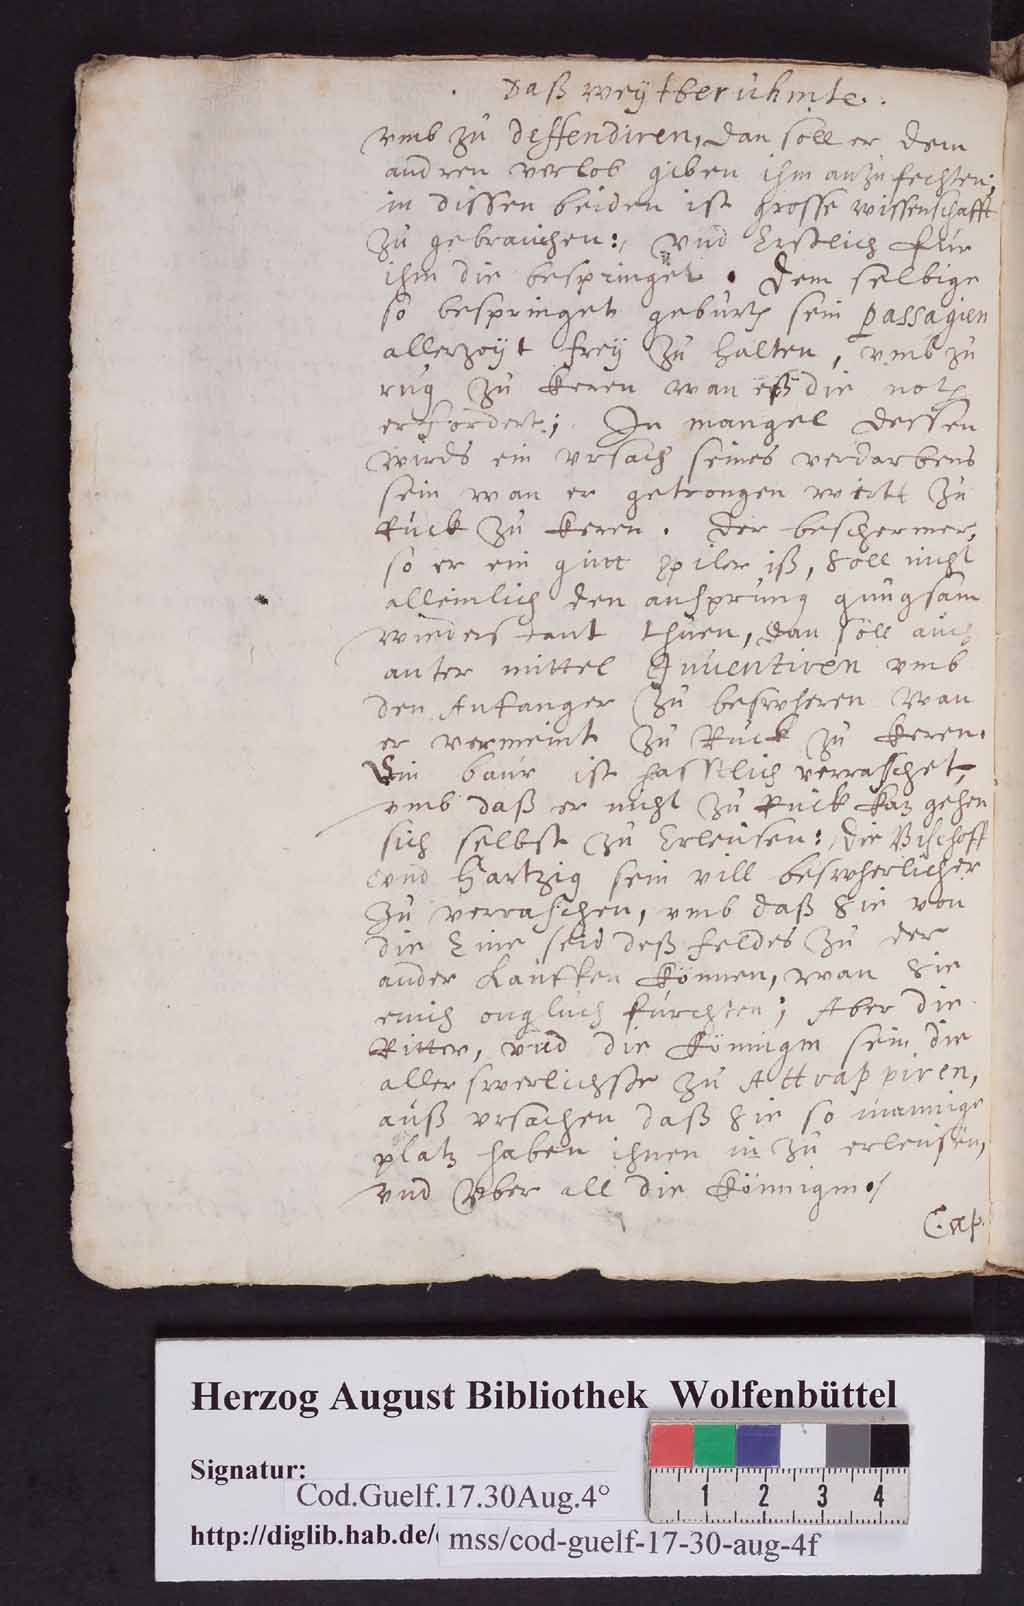 Daß weytberuhmte.
vmb zu deffendiren, dan soll er dem
andren verlob geben ihm anzufechten;
in dissen beiden ist grosse wissenschafft
zu gebrauchen: vnd Erstlich für
ihm die bespringet. Dem selbige
so bespringet geburth sein passagien
allerzeyt frey zu halten, vmb zu
rug zu keren wan eß die noth
erfordert; In mangel dessen
wirds ein vrsach seines verdarbens
sein wan er getrongen wirtt zu
Ruck zu keren. Der beschermer,
so er ein gutt spiler iß, soll nicht
alleinlich den ansprung gnugsam
wiederstant thuen, dan söll auch
anter mittel Inuentiren vmb
den Anfanger zu beswheren wan
er vermeint zu Ruck zu keren.
Ein baur ist hasstlich verraschet,
vmb daß er nicht zu Ruck kan gehen
sich selbst zu Erleusen: Die Bischoff
vnd Hartzig sein vill beswherlicher
zu verraschen, vmb daß Sie von
die Eine seid deß feldes zu der
ander Lauffen können, wan Sie
einich ongluch furchten; Aber die
Ritter, vnd die Könnigin sein die
aller swerlichste zu Attrappiren,
auß vrsachen daß Sie so mannige
platz haben ihnen in zu erleusen,
vnd vber all die Könnigin./
Cap.
Herzog August Bibliothek Wolfenbüttel
Signatur:
Cod.Guelf.17.30Aug.4°
1 2 3 4
http://diglib.hab.de/ mss/cod-guelf-17-30-aug-4f